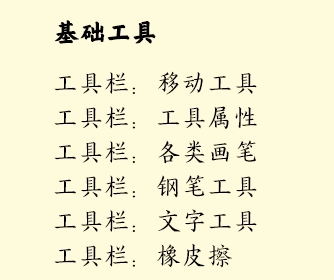 基础工具
工具栏：移动工具
工具栏：工具属性
工具栏：各类画笔
工具栏：钢笔工具
工具栏：文字工具
工具栏：橡皮擦